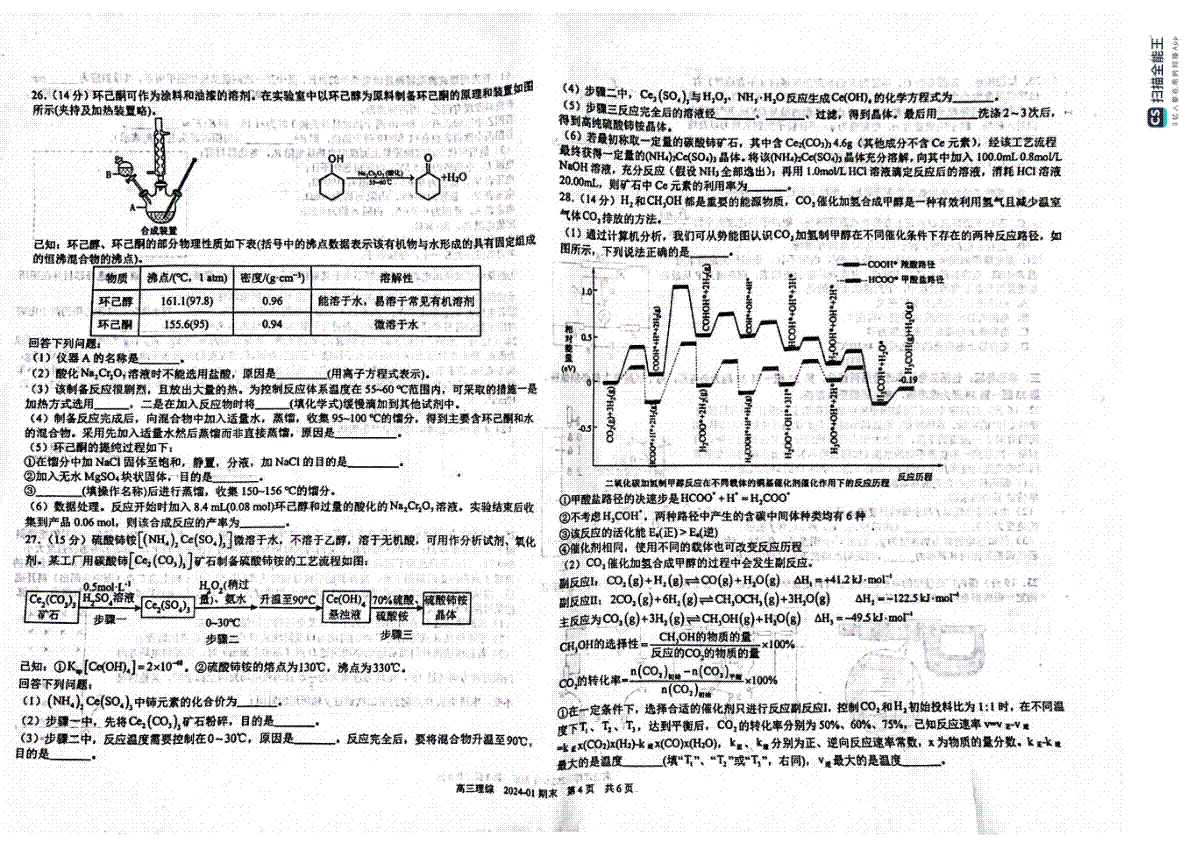 26.(14分)环己酮可作为涂料和油漆的溶剂。在实验室中以环己醇为原料制备环己酮的原理和装置如图
所示(夹持及加热装置略)。
B
A
合成装置
OH
Na₂Cr₂O₇(酸化)
55~60℃
O
+H₂O
已知：环己醇、环己酮的部分物理性质如下表(括号中的沸点数据表示该有机物与水形成的具有固定组成
的恒沸混合物的沸点)。
物质 沸点/(℃，1 atm) 密度/(g·cm⁻³) 溶解性
环己醇 161.1(97.8) 0.96 能溶于水，易溶于常见有机溶剂
环己酮 155.6(95) 0.94 微溶于水
回答下列问题：
(1)仪器 A 的名称是______。
(2)酸化 Na₂Cr₂O₇溶液时不能选用盐酸，原因是______(用离子方程式表示)。
(3)该制备反应很剧烈，且放出大量的热。为控制反应体系温度在 55~60 ℃范围内，可采取的措施一是
加热方式选用______，二是在加入反应物时将______(填化学式)缓慢滴加到其他试剂中。
(4)制备反应完成后，向混合物中加入适量水，蒸馏，收集 95~100 ℃的馏分，得到主要含环己酮和水
的混合物。采用先加入适量水然后蒸馏而非直接蒸馏，原因是______。
(5)环己酮的提纯过程如下：
①在馏分中加 NaCl 固体至饱和，静置，分液，加 NaCl 的目的是______。
②加入无水 MgSO₄块状固体，目的是______。
③______(填操作名称)后进行蒸馏，收集 150~156 ℃的馏分。
(6)数据处理。反应开始时加入 8.4 mL(0.08 mol)环己醇和过量的酸化的 Na₂Cr₂O₇溶液。实验结束后收
集到产品 0.06 mol，则该合成反应的产率为______。
27.(15分)硫酸铈铵[(NH₄)₂Ce(SO₄)₃]微溶于水，不溶于乙醇，溶于无机酸，可用作分析试剂、氧化
剂。某工厂用碳酸铈[Ce₂(CO₃)₃]矿石制备硫酸铈铵的工艺流程如图：
Ce₂(CO₃)₃矿石
0.5mol·L⁻¹H₂SO₄溶液
步骤一
Ce₂(SO₄)₃
H₂O₂(稍过量)、氨水
0~30℃
步骤二
升温至90℃
Ce(OH)₄悬浊液
70%硫酸、硫酸铵
步骤三
硫酸铈铵晶体
已知：①Kₛₚ[Ce(OH)₄]=2×10⁻⁴⁸。②硫酸铈铵的熔点为130℃，沸点为330℃。
回答下列问题：
(1)(NH₄)₂Ce(SO₄)₃中铈元素的化合价为______。
(2)步骤一中，先将Ce₂(CO₃)₃矿石粉碎，目的是______。
(3)步骤二中，反应温度需要控制在0~30℃，原因是______。反应完全后，要将混合物升温至90℃，
目的是______。
(4)步骤二中，Ce₂(SO₄)₃与H₂O₂、NH₃·H₂O反应生成Ce(OH)₄的化学方程式为______。
(5)步骤三反应完全后的溶液经______、______、过滤，得到晶体。最后用______洗涤 2~3 次后，
得到高纯硫酸铈铵晶体。
(6)若最初称取一定量的碳酸铈矿石，其中含 Ce₂(CO₃)₃ 4.6g(其他成分不含 Ce 元素)，经该工艺流程
最终获得一定量的(NH₄)₂Ce(SO₄)₃晶体。将该(NH₄)₂Ce(SO₄)₃晶体充分溶解，向其中加入 100.0mL 0.8mol/L
NaOH 溶液，充分反应(假设 NH₃全部逸出)；再用 1.0mol/L HCl 溶液滴定反应后的溶液，消耗 HCl 溶液
20.00mL，则矿石中 Ce 元素的利用率为______。
28.(14分)H₂和CH₃OH都是重要的能源物质，CO₂催化加氢合成甲醇是一种有效利用氢气且减少温室
气体CO₂排放的方法。
(1)通过计算机分析，我们可从势能图认识CO₂加氢制甲醇在不同催化条件下存在的两种反应路径，如
图所示，下列说法正确的是______。
COOH* 羧酸路径
HCOO* 甲酸盐路径
相对能量(eV)
1.0
0.5
0
-0.5
-0.19
CO₂(g)+3H₂(g)
反应历程
二氧化碳加氢制甲醇反应在不同载体的铜基催化剂催化作用下的反应历程
①甲酸盐路径的决速步是HCOO*+H*=H₂COO*
②不考虑H₃COH*，两种路径中产生的含碳中间体种类均有 6 种
③该反应的活化能 Eₐ(正)>Eₐ(逆)
④催化剂相同，使用不同的载体也可改变反应历程
(2)CO₂催化加氢合成甲醇的过程中会发生副反应。
副反应I：CO₂(g)+H₂(g)⇌CO(g)+H₂O(g) ΔH₁=+41.2 kJ·mol⁻¹
副反应II：2CO₂(g)+6H₂(g)⇌CH₃OCH₃(g)+3H₂O(g) ΔH₂=-122.5 kJ·mol⁻¹
主反应为CO₂(g)+3H₂(g)⇌CH₃OH(g)+H₂O(g) ΔH₃=-49.5 kJ·mol⁻¹
CH₃OH的选择性=CH₃OH的物质的量/反应的CO₂的物质的量×100%
CO₂的转化率=n(CO₂)初始-n(CO₂)平衡/n(CO₂)初始×100%
①在一定条件下，选择合适的催化剂只进行反应副反应I，控制CO₂和H₂初始投料比为 1:1 时，在不同温
度下T₁、T₂、T₃，达到平衡后，CO₂的转化率分别为 50%、60%、75%。已知反应速率 v=v正-v逆
=k正x(CO₂)x(H₂)-k逆x(CO)x(H₂O)，k正、k逆分别为正、逆向反应速率常数，x 为物质的量分数。k正-k逆
最大的是温度______(填“T₁”、“T₂”或“T₃”，右同)，v逆最大的是温度______。
高三理综 2024-01 期末 第 4 页 共 6 页
CS 扫描全能王